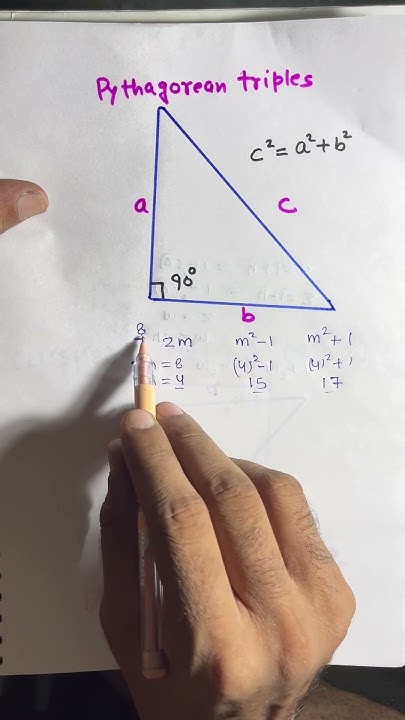 Pythagorean triples
c² = a² + b²
a
c
90°
b
8
2m m²-1 m²+1
= 8 (4)²-1 (4)²+1
= 4 15 17